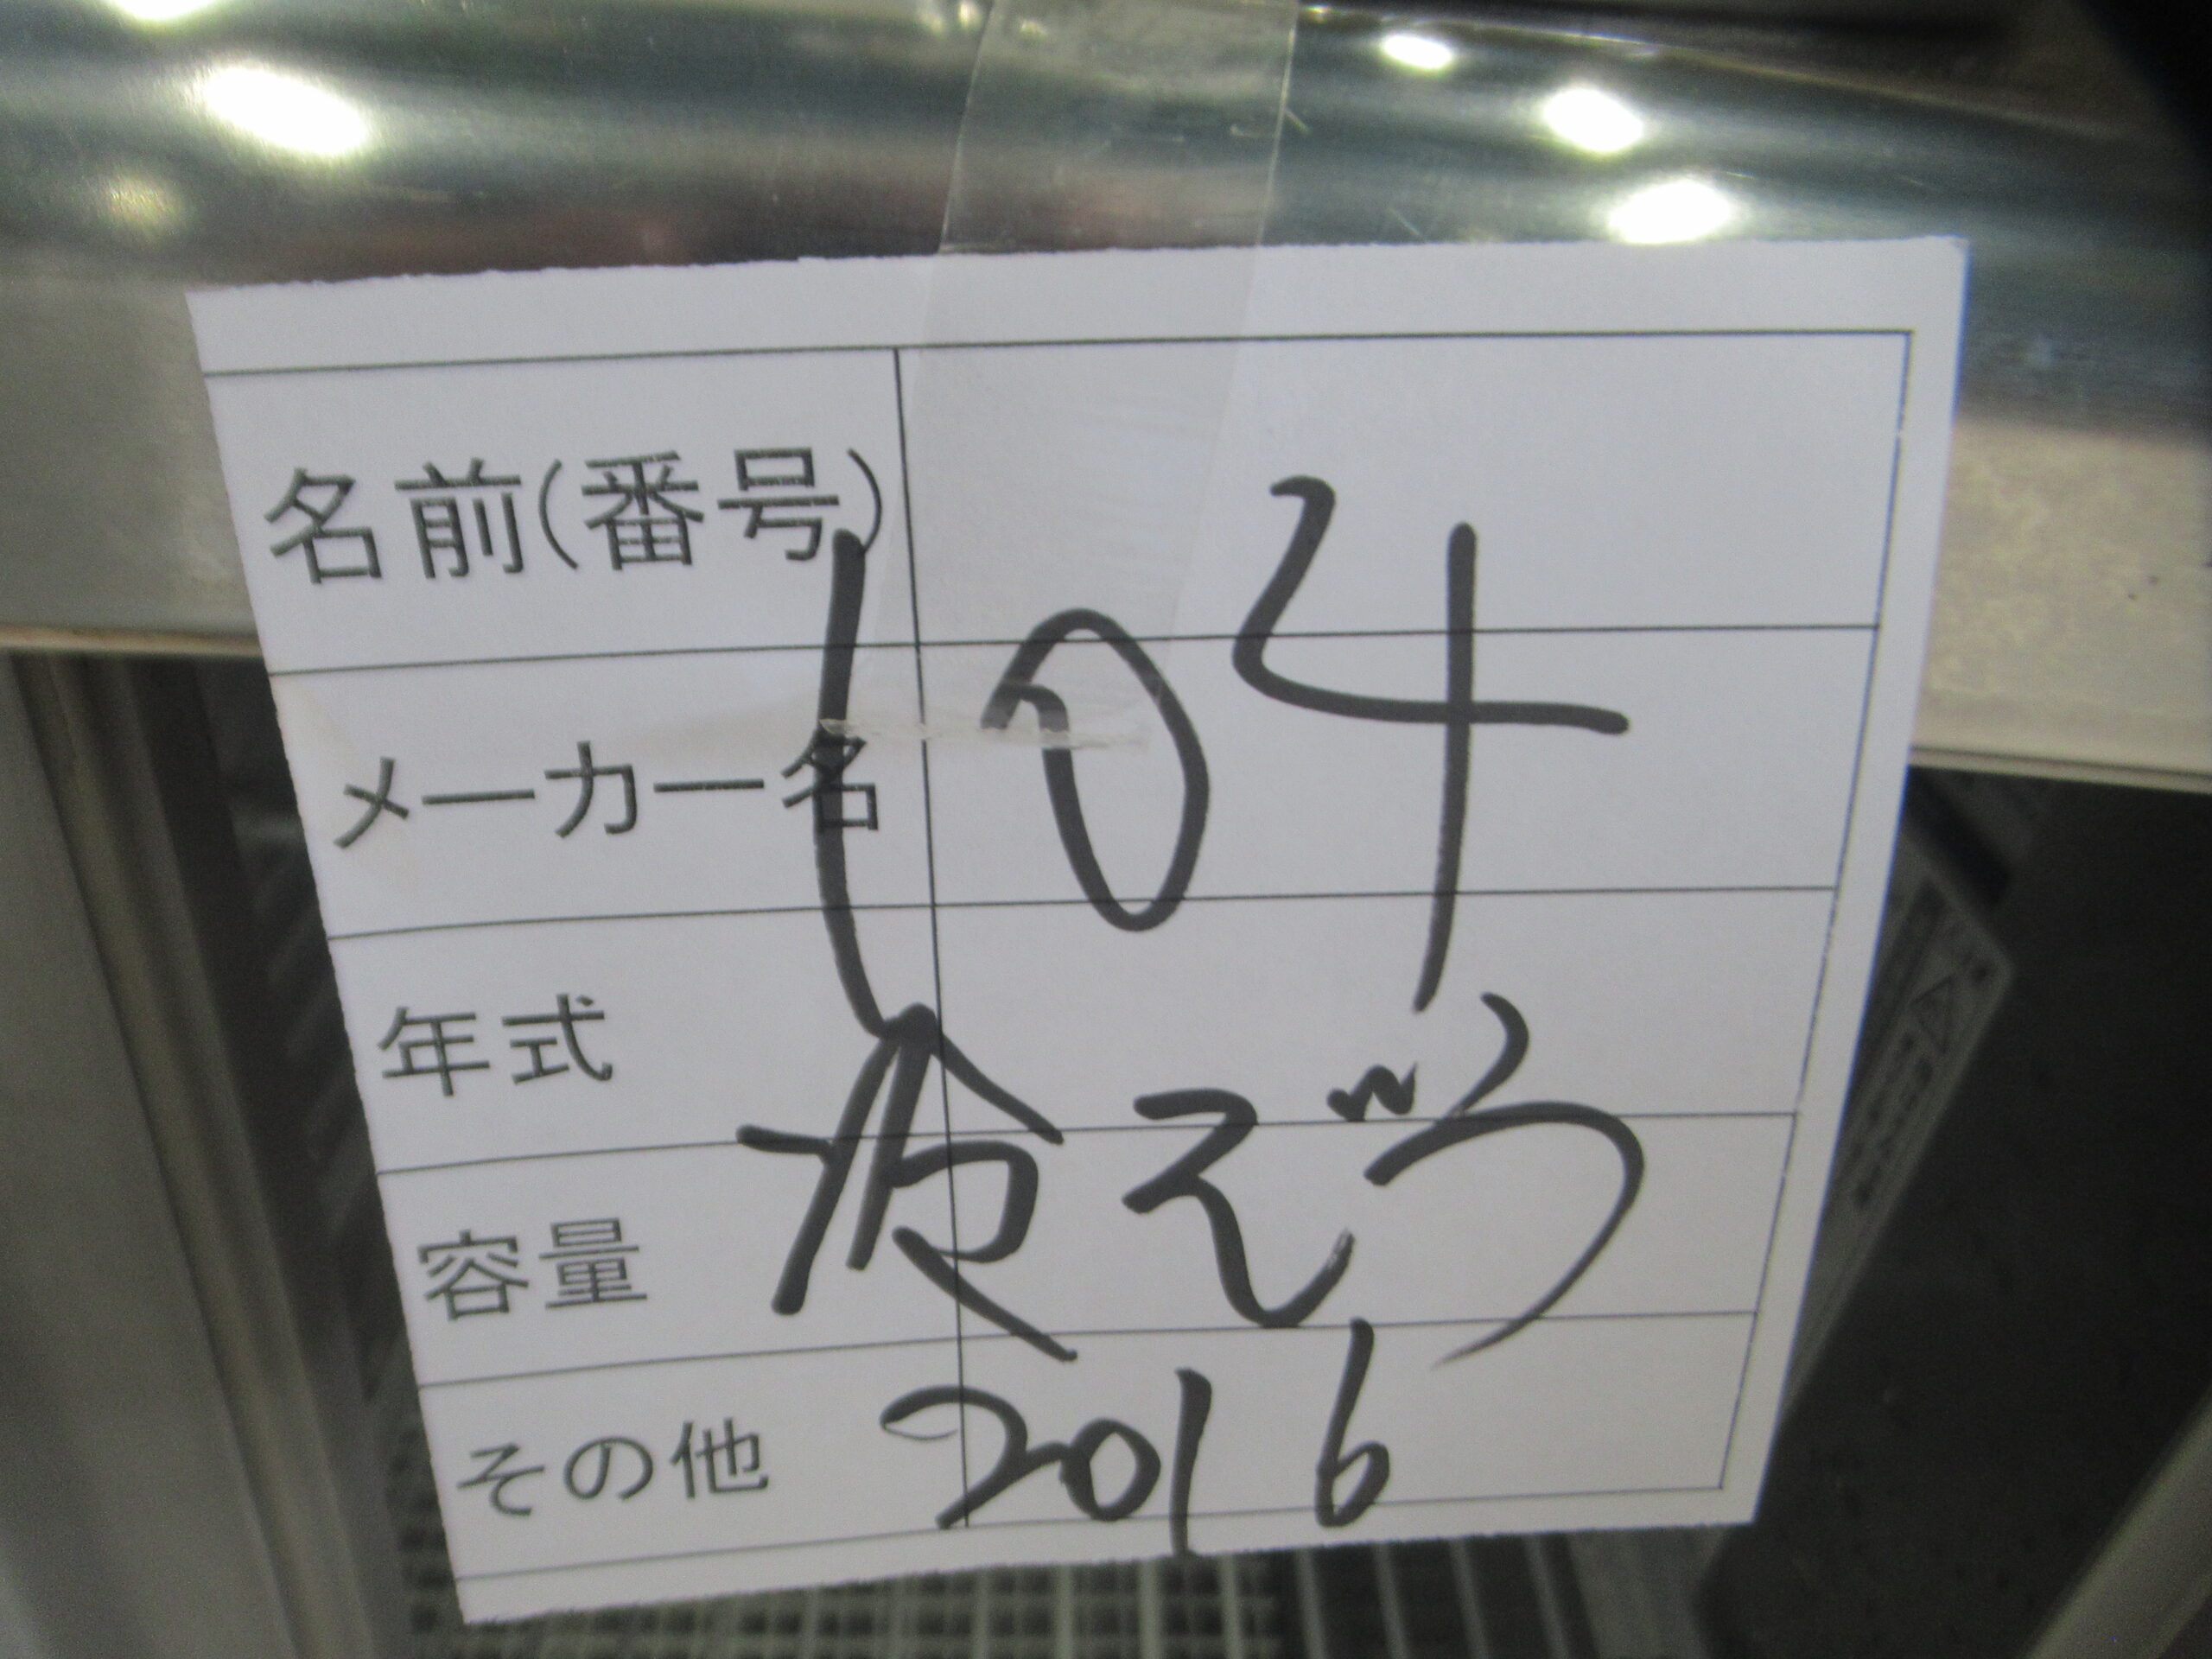 名前(番号)
104
メーカー名
年式
冷ぞう
容量
その他
2016